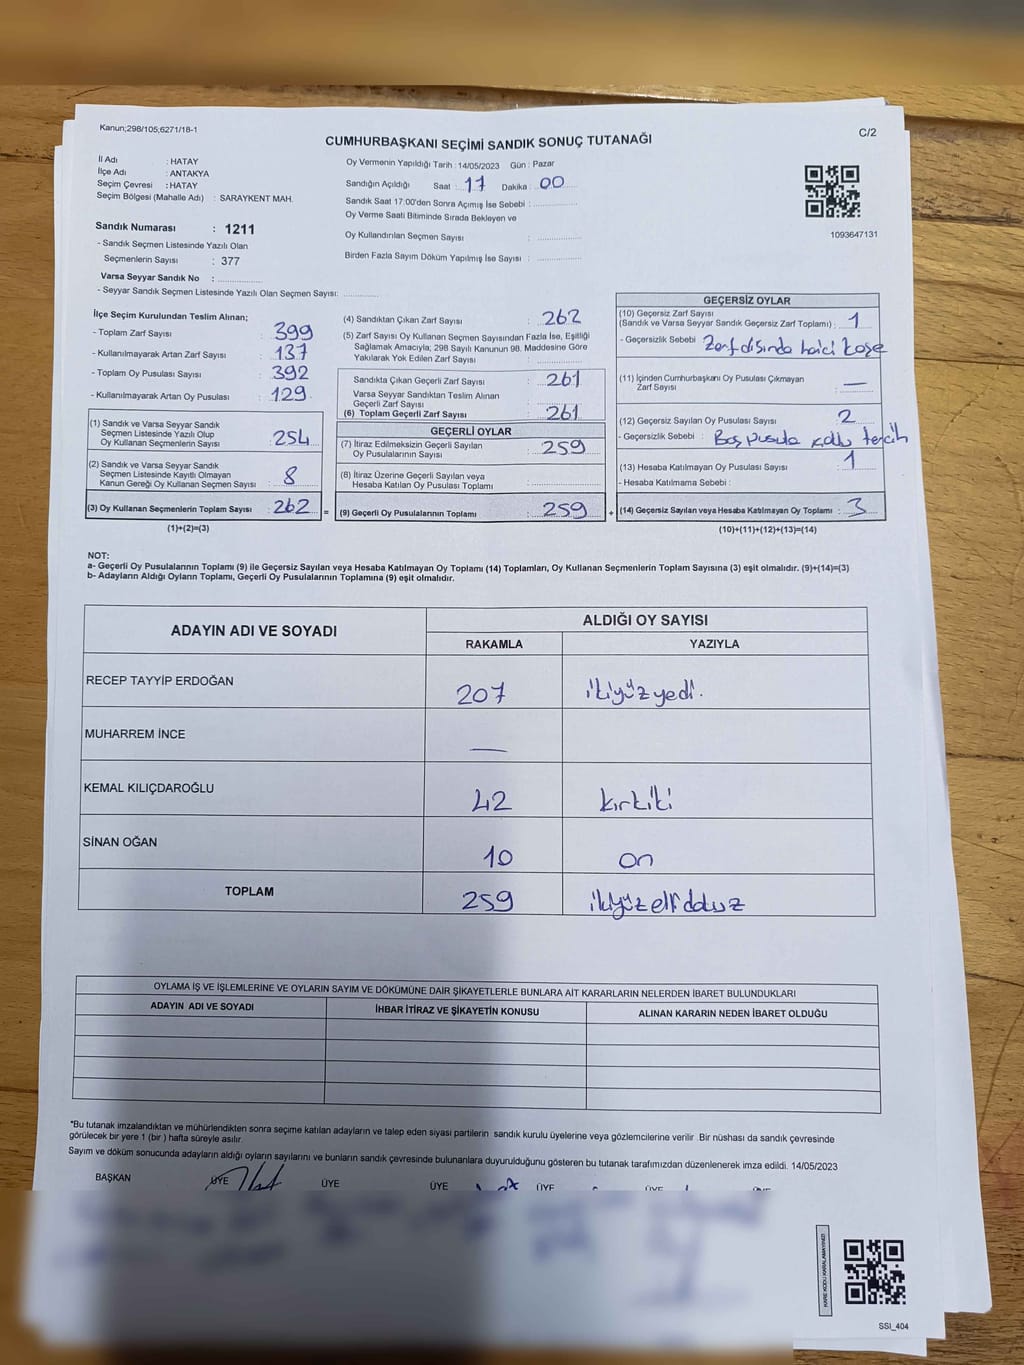 Kanun;298/105;6271/18-1
C/2
CUMHURBAŞKANI SEÇİMİ SANDIK SONUÇ TUTANAĞI
İl Adı : HATAY
İlçe Adı : ANTAKYA
Seçim Çevresi : HATAY
Seçim Bölgesi (Mahalle Adı) : SARAYKENT MAH.
Sandık Numarası : 1211
- Sandık Seçmen Listesinde Yazılı Olan
Seçmenlerin Sayısı : 377
Varsa Seyyar Sandık No :
- Seyyar Sandık Seçmen Listesinde Yazılı Olan Seçmen Sayısı:
Oy Vermenin Yapıldığı Tarih : 14/05/2023 Gün : Pazar
Sandığın Açıldığı Saat : 17 Dakika : 00
Sandık Saat 17:00'den Sonra Açımış İse Sebebi :
Oy Verme Saati Bitiminde Sırada Bekleyen ve
Oy Kullandırılan Seçmen Sayısı :
Birden Fazla Sayım Döküm Yapılmış İse Sayısı :
1093647131
İlçe Seçim Kurulundan Teslim Alınan;
- Toplam Zarf Sayısı : 399
- Kullanılmayarak Artan Zarf Sayısı : 137
- Toplam Oy Pusulası Sayısı : 392
- Kullanılmayarak Artan Oy Pusulası : 129
(1) Sandık ve Varsa Seyyar Sandık
Seçmen Listesinde Yazılı Olup
Oy Kullanan Seçmenlerin Sayısı : 254
(2) Sandık ve Varsa Seyyar Sandık
Seçmen Listesinde Kayıtlı Olmayan
Kanun Gereği Oy Kullanan Seçmen Sayısı : 8
(3) Oy Kullanan Seçmenlerin Toplam Sayısı : 262 =
(1)+(2)=(3)
(4) Sandıktan Çıkan Zarf Sayısı : 262
(5) Zarf Sayısı Oy Kullanan Seçmen Sayısından Fazla İse, Eşitliği
Sağlamak Amacıyla, 298 Sayılı Kanunun 98. Maddesine Göre
Yakılarak Yok Edilen Zarf Sayısı :
Sandıkta Çıkan Geçerli Zarf Sayısı : 261
Varsa Seyyar Sandıktan Teslim Alınan
Geçerli Zarf Sayısı :
(6) Toplam Geçerli Zarf Sayısı : 261
GEÇERLİ OYLAR
(7) İtiraz Edilmeksizin Geçerli Sayılan
Oy Pusulalarının Sayısı : 259
(8) İtiraz Üzerine Geçerli Sayılan veya
Hesaba Katılan Oy Pusulası Toplamı :
(9) Geçerli Oy Pusulalarının Toplamı : 259 +
GEÇERSİZ OYLAR
(10) Geçersiz Zarf Sayısı
(Sandık ve Varsa Seyyar Sandık Geçersiz Zarf Toplamı) : 1
- Geçersizlik Sebebi : Zarf dışında harici kaşe
(11) İçinden Cumhurbaşkanı Oy Pusulası Çıkmayan
Zarf Sayısı : —
(12) Geçersiz Sayılan Oy Pusulası Sayısı : 2
- Geçersizlik Sebebi : Boş pusula tercih
(13) Hesaba Katılmayan Oy Pusulası Sayısı : 1
- Hesaba Katılmama Sebebi :
(14) Geçersiz Sayılan veya Hesaba Katılmayan Oy Toplamı : 3
(10)+(11)+(12)+(13)=(14)
NOT:
a- Geçerli Oy Pusulalarının Toplamı (9) ile Geçersiz Sayılan veya Hesaba Katılmayan Oy Toplamı (14) Toplamları, Oy Kullanan Seçmenlerin Toplam Sayısına (3) eşit olmalıdır. (9)+(14)=(3)
b- Adayların Aldığı Oyların Toplamı, Geçerli Oy Pusulalarının Toplamına (9) eşit olmalıdır.
ADAYIN ADI VE SOYADI
ALDIĞI OY SAYISI
RAKAMLA YAZIYLA
RECEP TAYYİP ERDOĞAN 207 ikiyüz yedi.
MUHARREM İNCE —
KEMAL KILIÇDAROĞLU 42 kırkiki
SİNAN OĞAN 10 on
TOPLAM 259 ikiyüz elli dokuz
OYLAMA İŞ VE İŞLEMLERİNE VE OYLARIN SAYIM VE DÖKÜMÜNE DAİR ŞİKAYETLERLE BUNLARA AİT KARARLARIN NELERDEN İBARET BULUNDUKLARI
ADAYIN ADI VE SOYADI İHBAR İTİRAZ VE ŞİKAYETİN KONUSU ALINAN KARARIN NEDEN İBARET OLDUĞU
*Bu tutanak imzalandıktan ve mühürlendikten sonra seçime katılan adayların ve talep eden siyasi partilerin sandık kurulu üyelerine veya gözlemcilerine verilir. Bir nüshası da sandık çevresinde
görülecek bir yere 1 (bir ) hafta süreyle asılır.
Sayım ve döküm sonucunda adayların aldığı oyların sayılarını ve bunların sandık çevresinde bulunanlara duyurulduğunu gösteren bu tutanak tarafımızdan düzenlenerek imza edildi. 14/05/2023
BAŞKAN ÜYE ÜYE ÜYE ÜYE ÜYE ÜYE
KARE KODU KARALAMAYINIZ!
SSI_404